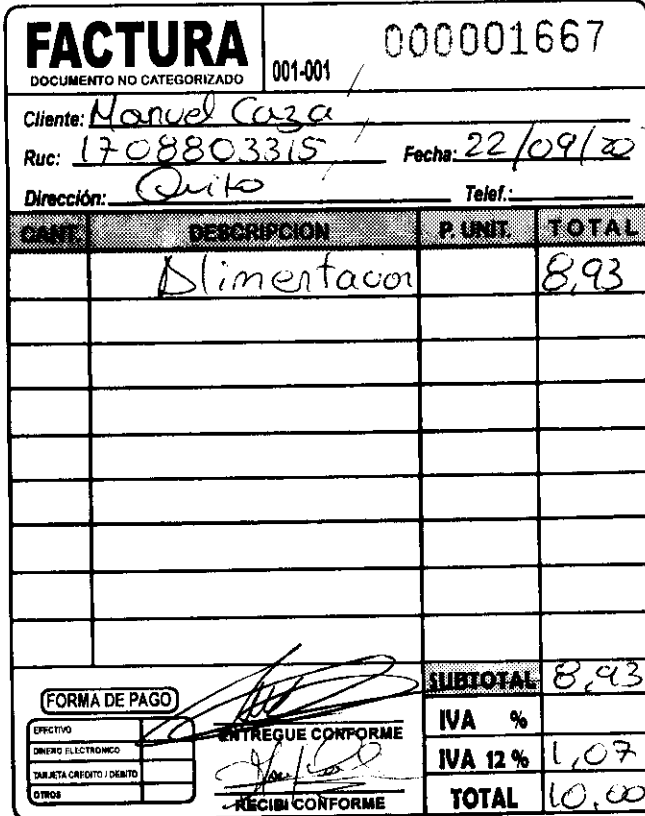 FACTURA
DOCUMENTO NO CATEGORIZADO
001-001
000001667
Cliente: Manuel Caza
Ruc: 1708803315 Fecha: 22/09/20
Dirección: Quito Telef.:
CANT. DESCRIPCION P. UNIT. TOTAL
Alimentacion 8,93
SUBTOTAL 8,93
FORMA DE PAGO
EFECTIVO
DINERO ELECTRONICO
TARJETA CREDITO / DEBITO
OTROS
ENTREGUE CONFORME
RECIBI CONFORME
IVA %
IVA 12 % 1,07
TOTAL 10,00